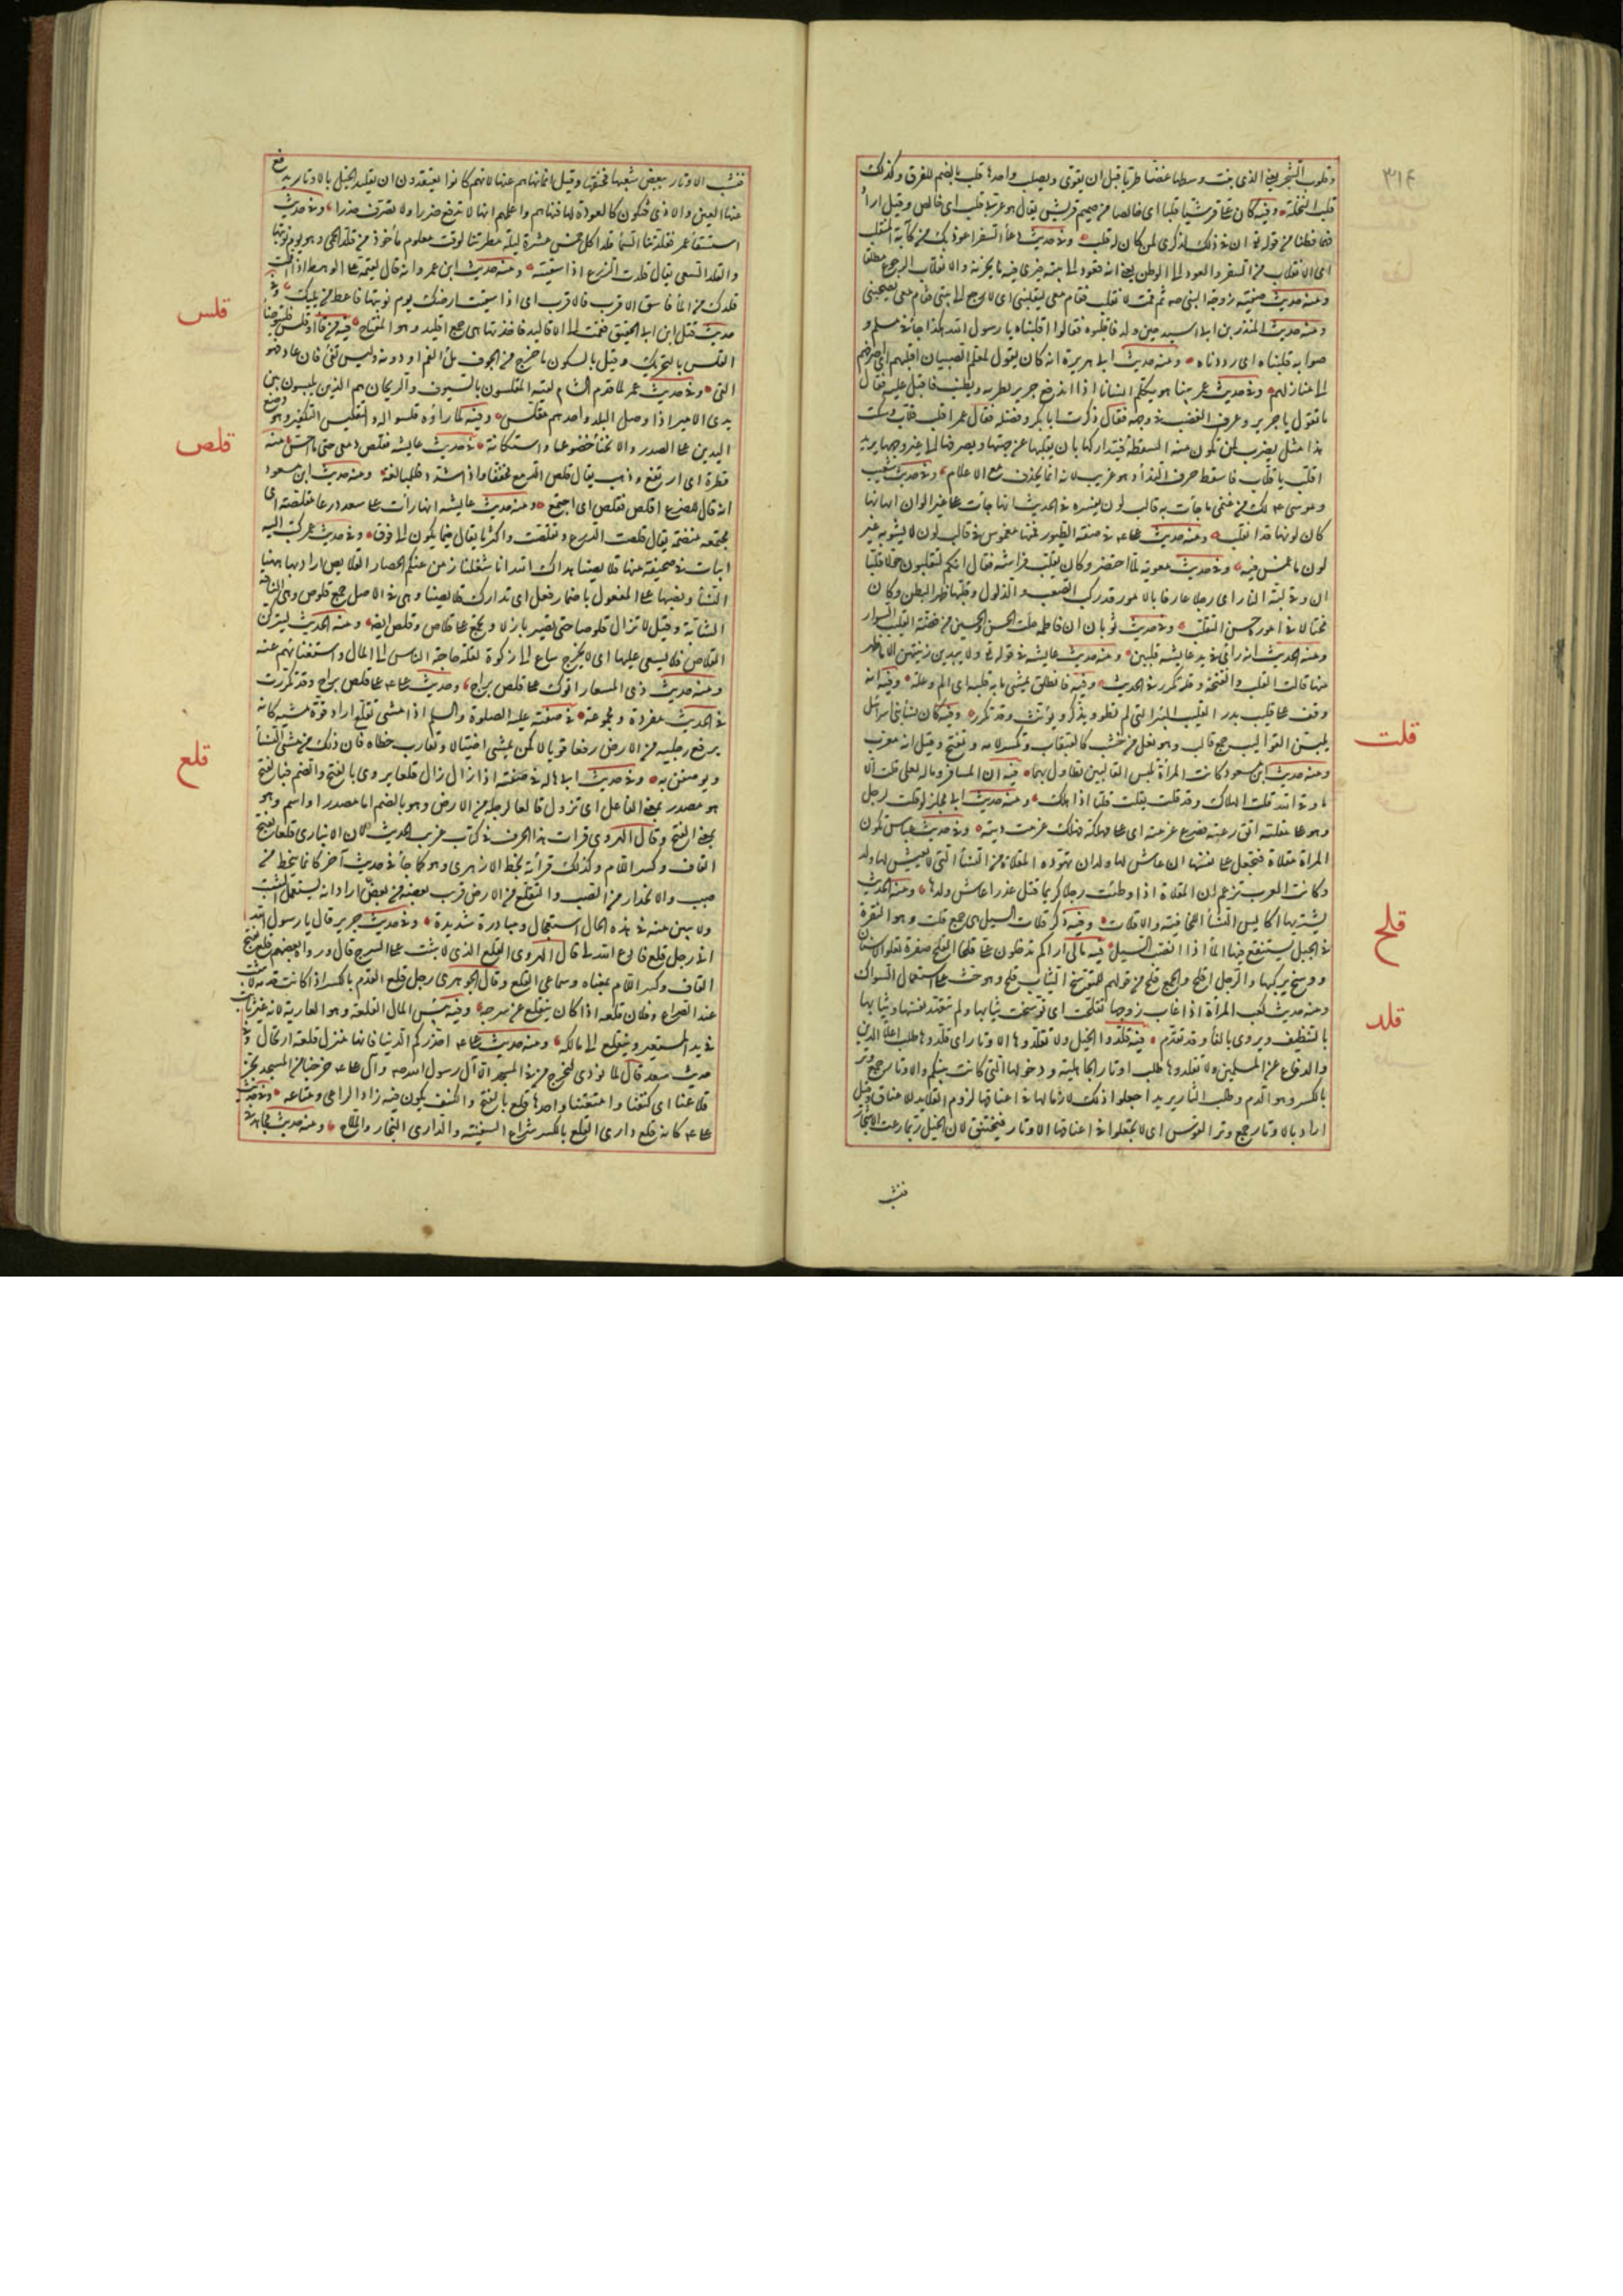 وقلوب الشجر يعني الذي ينبت وسطها غضا طريا قبل ان يقوى ويصلب واحدها قلب بالضم للفرق وكذلك
قلب النخلة وفيه كان علي قرشيا قلبا اى خالصا من صميم قريش يقال هو عربي قلب اى خالص وقيل اراد
فهما فطنا من قوله تع ان في ذلك لذكرى لمن كان له قلب وفي حديث دعاء السفر اعوذ بك من كآبة المنقلب
اى الانقلاب من السفر والعود الى الوطن يعني انه يعود الى بيته فيرى فيه ما يحزنه والانقلاب الرجوع مطلقا
ومنه حديث صفية زوجة النبي صه ثم قمت لانقلب فقام معي ليقلبني اى لارجع الى بيتي فقام معي يصحبني
ومنه حديث المنذر بن ابي اسيد حين ولد فاقلبوه فقالوا اقلبناه يا رسول الله هكذا جاء في مسلم و
صوابه قلبناه اى رددناه ومنه حديث ابي هريرة انه كان يقول لمعلم الصبيان اقلبهم اى اصرفهم
الى منازلهم وفي حديث عمر بينا هو يكلم انسانا اذا اندفع جرير يطريه ويطنب فاقبل عليه فقال
ما تقول يا جرير وعرف الغضب في وجهه فقال ذكرت ابا بكر وفضله فقال عمر اقلب قلاب وسكت
هذا مثل يضرب لمن تكون منه السقطة فيتداركها بان يقلبها عن جهتها ويصرفها الى غير وجهها يريد
اقلب يا قلاب فاسقط حرف النداء وهو غريب لانه انما يحذف مع الاعلام وفي حديث شعيب
وموسى ع لك من غنمي ما جاءت به قالب لون تفسيره في الحديث انها جاءت على غير الوان امهاتها
كان لونها قد انقلب ومنه حديث علي ع في صفة الطيور فمنها مغموس في قالب لون لا يشوبه غير
لون ما غمس فيه وفي حديث معوية لما احتضر وكان يقلب فراشه فقال انكم لتقلبون حولا قلبا
ان وقي كبة النار اى رجلا عارفا بالامور قد ركب الصعب والذلول وقلبها ظهرا لبطن وكان
محتالا في اموره حسن التقلب وفي حديث ثوبان ان فاطمة حلت الحسن والحسين من فضة القلب السوار
ومنه الحديث انه راى في يد عايشة قلبين ومنه حديث عايشة في قوله تع ولا يبدين زينتهن الا ما ظهر
منها قالت القلب والفتخة وقد تكرر في الحديث وفيه فانطلق يمشي ما به قلبة اى الم وعلة وفيه انه
وقف على قليب بدر القليب البئر التي لم تطو ويذكر ويؤنث وقد تكرر وفيه كان نساء بني اسرائيل
يلبسن القواليب جمع قالب وهو نعل من خشب كالقبقاب وتكسر لامه وتفتح وقيل انه معرب
ومنه حديث ابن مسعود كانت المرأة تلبس القالبين تطاول بهما فيه ان المسافر وماله لعلى قلت الا
ما وقى الله قلت الهلاك وقد قلت يقلت قلتا اذا هلك ومنه حديث ابي مجلز لو قلت لرجل
وهو على مقلتة اتق رعته فصرع غرمته اى على مهلكة فهلك غرمت ديته وفي حديث عباس تكون
المرأة مقلاة فتجعل على نفسها ان عاش لها ولد ان تهوده المقلاة من النساء التي لا يعيش لها ولد
وكانت العرب تزعم ان المقلاة اذا وطئت رجلا كريما قتل غدرا عاش ولدها ومنه الحديث
يشتريها اكايس النساء للخافية والاقلات وفيه ذكر قلات السيل هى جمع قلت وهو النقرة
في الجبل يستنقع فيها الماء اذا انصب السيل فيه مالى اراكم تدخلون علي قلحا القلح صفرة تعلو الاسنان
ووسخ يركبها والرجل اقلح والجمع قلح من قولهم للمتوسخ الثياب قلح وهو حث على استعمال السواك
ومنه حديث كعب المرأة اذا غاب زوجها تقلحت اى توسخت ثيابها ولم تتعهد نفسها وثيابها
بالتنظيف ويروى بالفاء وقد تقدم فيه قلدوا الخيل ولا تقلدوها الاوتار اى قلدوها طلب اعلاء الدين
والدفاع عن المسلمين ولا تقلدوها طلب اوتار الجاهلية ودخولها التي كانت بينكم والاوتار جمع وتر
بالكسر وهو الدم وطلب الثار يريد اجعلوا ذلك لازما لها في اعناقها لزوم القلايد للاعناق وقيل
اراد بالاوتار جمع وتر القوس اى لا تجعلوا في اعناقها الاوتار فتختنق لان الخيل ربما رعت الاشجار
فنشب
قلت
قلح
قلد
فنشب الاوتار ببعض شعبها فخنقتها وقيل انما نهاهم عنها لانهم كانوا يعتقدون ان تقليد الخيل بالاوتار يدفع
عنها العين والاذى فتكون كالعوذة لها فنهاهم واعلمهم انها لا تدفع ضررا ولا تصرف حذرا وفي حديث
استسقاء عمر فقلدتنا السماء قلدا كل خمس عشرة ليلة مطرتنا لوقت معلوم مأخوذ من قلد الحمى وهو يوم نوبتها
والقلد السقى يقال قلدت الزرع اذا سقيته ومنه حديث ابن عمرو انه قال لقيمه على الوهط اذا اقمت
قلدك من الماء فاسق الاقرب فالاقرب اى اذا سقيت ارضك يوم نوبتها فاعط من يليك وفي
حديث قتل ابن ابي الحقيق فقمت الى الاقاليد فاخذتها هى جمع اقليد وهو المفتاح فيه من قاء او قلس فليتوضأ
القلس بالتحريك وقيل بالسكون ما خرج من الجوف ملأ الفم او دونه وليس بقئ فان عاد فهو
القئ وفي حديث عمر لما قدم الشام لقيه المقلسون بالسيوف والريحان هم الذين يلعبون بين
يدى الامير اذا وصل البلد واحدهم مقلس وفيه لما راؤه قلسوا له التقليس التكفير وهو وضع
اليدين على الصدر والانحناء خضوعا واستكانة في حديث عايشة فقلص دمعي حتى ما احس منه
قطرة اى ارتفع وذهب يقال قلص الدمع مخففا واذا شدد فللمبالغة ومنه حديث ابن مسعود
انه قال للضرع اقلص فقلص اى اجتمع ومنه حديث عايشة انها رأت على سعد درعا مقلصة اى
مجتمعة منضمة يقال قلصت الدرع وتقلصت واكثر ما يقال فيما يكون الى فوق وفي حديث عمر كتب اليه
ابيات في صحيفة منها قلايصنا هداك الله انا شغلنا زمن عنكم الحصار القلايص اراد بها ههنا
النساء ونصبها على المفعول باضمار فعل اى تدارك قلايصنا وهى في الاصل جمع قلوص وهى الناقة
الشابة وقيل لا تزال قلوصا حتى تصير بازلا وتجمع على قلاص وقلص ايضا ومنه الحديث ليتركن
القلاص فلا يسعى عليها اى لا يخرج ساع الى زكوة لقلة حاجة الناس الى المال واستغنائهم عنه
ومنه حديث ذى المسعار اتوك على قلص نواج وحديث علي ع على قلص نواج وقد تكررت
في الحديث مفردة ومجموعة في صفته عليه الصلوة والسلم اذا مشى تقلع اراد قوة مشيه كانه
يرفع رجليه من الارض رفعا قويا لا كمن يمشي اختيالا وتقارب خطاه فان ذلك من مشى النساء
ويوصفن به وفي حديث ابي هالة في صفته اذا زال زال قلعا يروى بالفتح والضم فبالفتح
هو مصدر بمعنى الفاعل اى تزول قالعا لرجله من الارض وهو بالضم اما مصدر او اسم وهو
بمعنى الفتح وقال الهروي قرأت هذا الحرف في كتاب غريب الحديث لابن الانباري قلعا بفتح
القاف وكسر اللام وكذلك قرأته بخط الازهري وهو كما جاء في حديث آخر كانما ينحط من
صبب والانحدار من الصبب والتقلع من الارض قريب بعضه من بعض اراد انه يستعمل التثبت
ولا يبين منه في هذه الحال استعجال ومبادرة شديدة وفي حديث جرير قال يا رسول الله
اني رجل قلع فادع الله لي قال الهروي القلع الذي لا يثبت على السرج قال ورواه بعضهم قلع بفتح
القاف وكسر اللام بمعناه وسماعي القلع وقال الجوهري رجل قلع القدم بالكسر اذا كانت قدمه لا تثبت
عند الصراع وفلان قلعة اذا كان يتقلع عن سرجه وفيه بئس المال القلعة هو العارية لانه غير ثابت
في يد المستعير وينقلع الى مالكه ومنه حديث علي ع احذركم الدنيا فانها منزل قلعة اى تحول وفي
حديث سعد قال لما نودى ليخرج من في المسجد الا آل رسول الله صه وآل علي ع خرجنا من المسجد نجر
قلاعنا اى كنفنا وامتعتنا واحدها قلع بالفتح والكنف يكون فيه زاد الراعي ومتاعه وفي حديث
علي ع كانه قلع دارى القلع بالكسر شراع السفينة والدارى البحار والملاح ومنه حديث مجاهد في
قلس
قلص
قلع